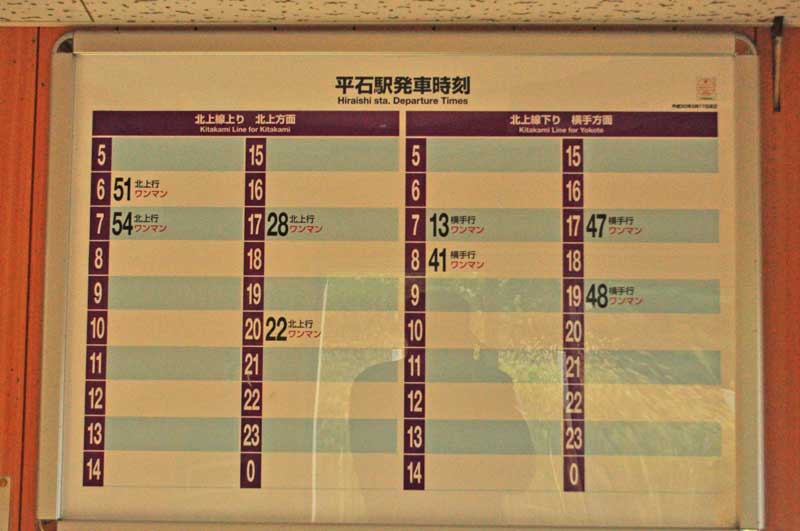 平石駅発車時刻
Hiraishi sta. Departure Times
北上線上り 北上方面
Kitakami Line for Kitakami
5
6 51 北上行 ワンマン
7 54 北上行 ワンマン
8
9
10
11
12
13
14
15
16
17 28 北上行 ワンマン
18
19
20 22 北上行 ワンマン
21
22
23
0
北上線下り 横手方面
Kitakami Line for Yokote
5
6
7 13 横手行 ワンマン
8 41 横手行 ワンマン
9
10
11
12
13
14
15
16
17 47 横手行 ワンマン
18
19 48 横手行 ワンマン
20
21
22
23
0